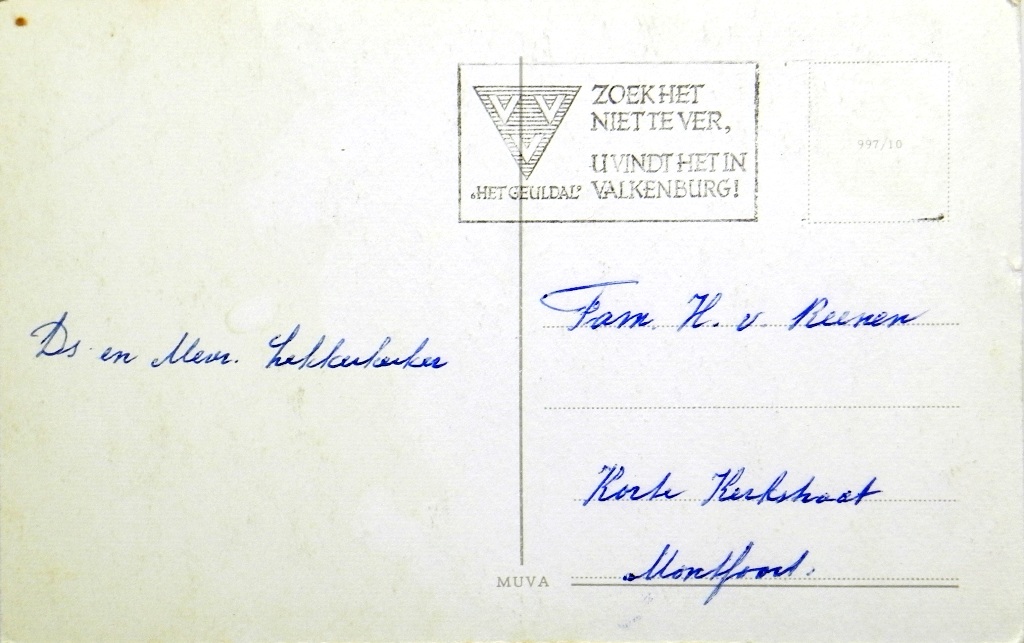 ZOEK HET
NIET TE VER,
U VINDT HET IN
VALKENBURG!
VVV
„HET GEULDAL"
997/10
Ds en Mevr. Lekkerkerker
Fam. H. v. Reenen
Korte Kerkstraat
Montfoort.
MUVA